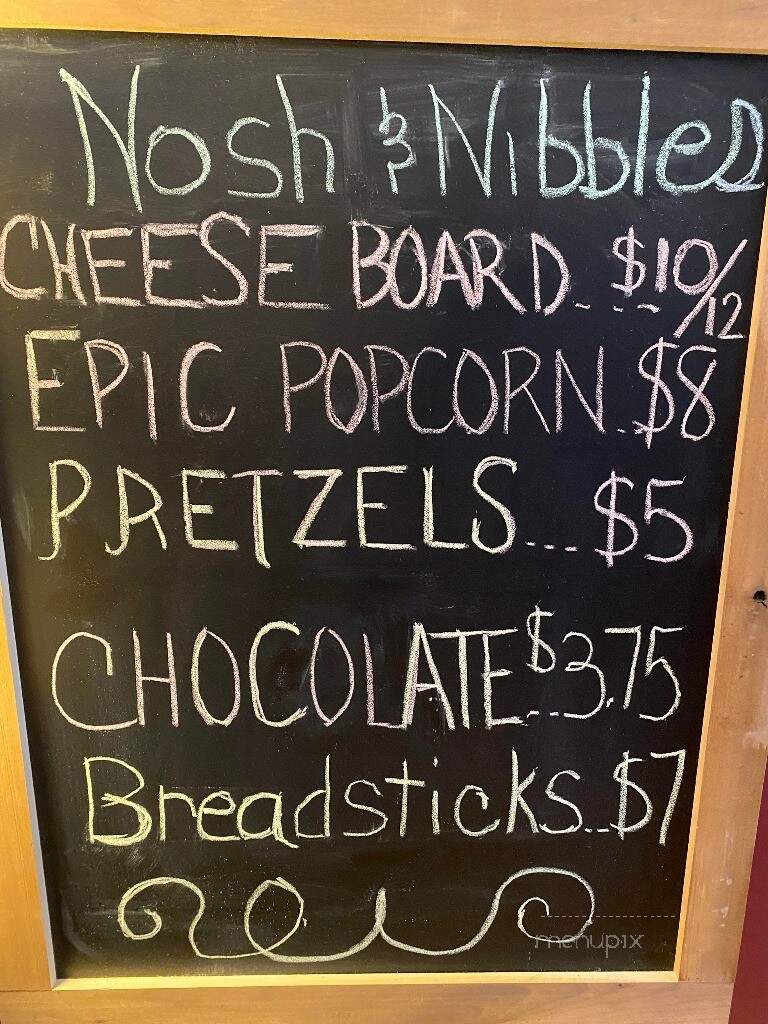 Nosh & Nibbles
CHEESE BOARD... $10/12
EPIC POPCORN..$8
PRETZELS...$5
CHOCOLATE..$3.75
Breadsticks..$7
menupix